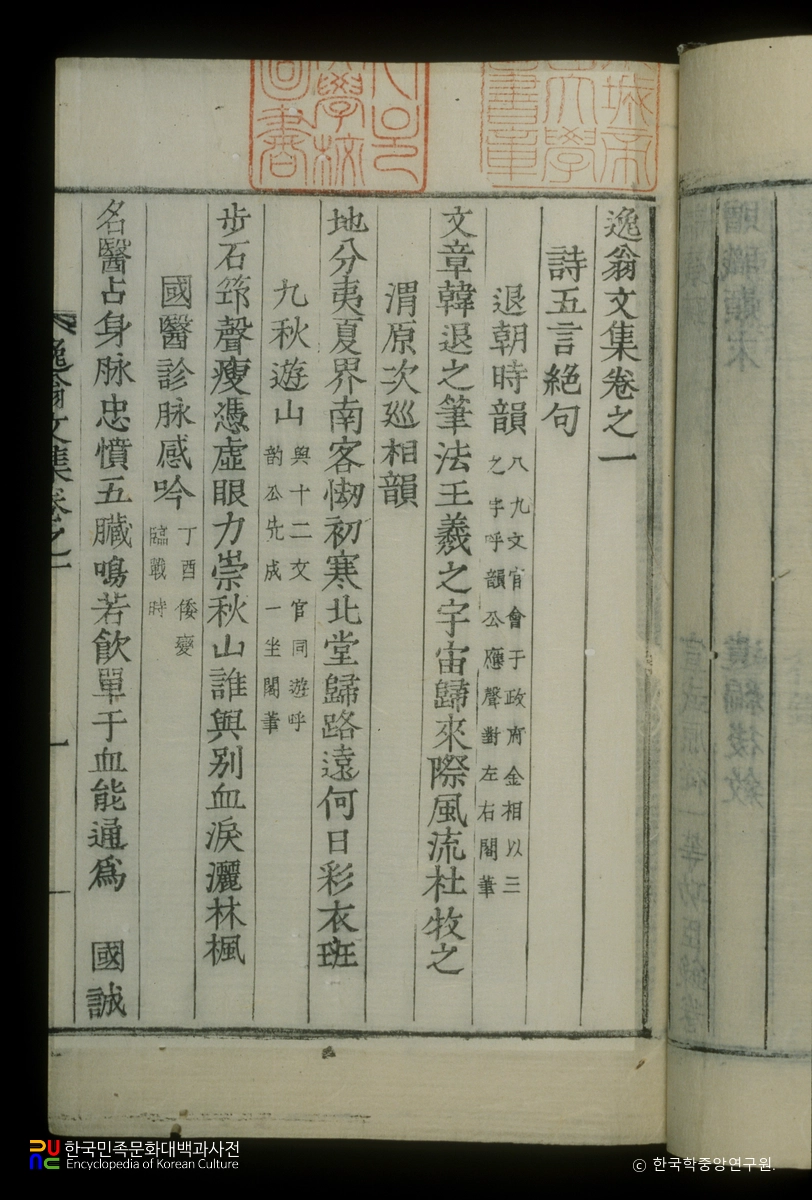 逸翁文集卷之一
詩五言絶句
退朝時韻 八九文官會于政府金相以三之字呼韻公應聲對左右閣筆
文章韓退之筆法王羲之宇宙歸來際風流杜牧之
渭原次巡相韻
地分夷夏界南客㤼初寒北堂歸路遠何日彩衣班
九秋遊山 與十二文官同遊呼韵公先成一坐閣筆
步石筇聲瘦憑虛眼力崇秋山誰與别血淚灑林楓
國醫診脉感吟 丁酉倭變臨戰時
名醫占身脉忠憤五臟鳴若飮單于血能通爲 國誠
逸翁文集卷之一
一
贈職顚末
遺編後敘
한국민족문화대백과사전
Encyclopedia of Korean Culture
ⓒ 한국학중앙연구원.